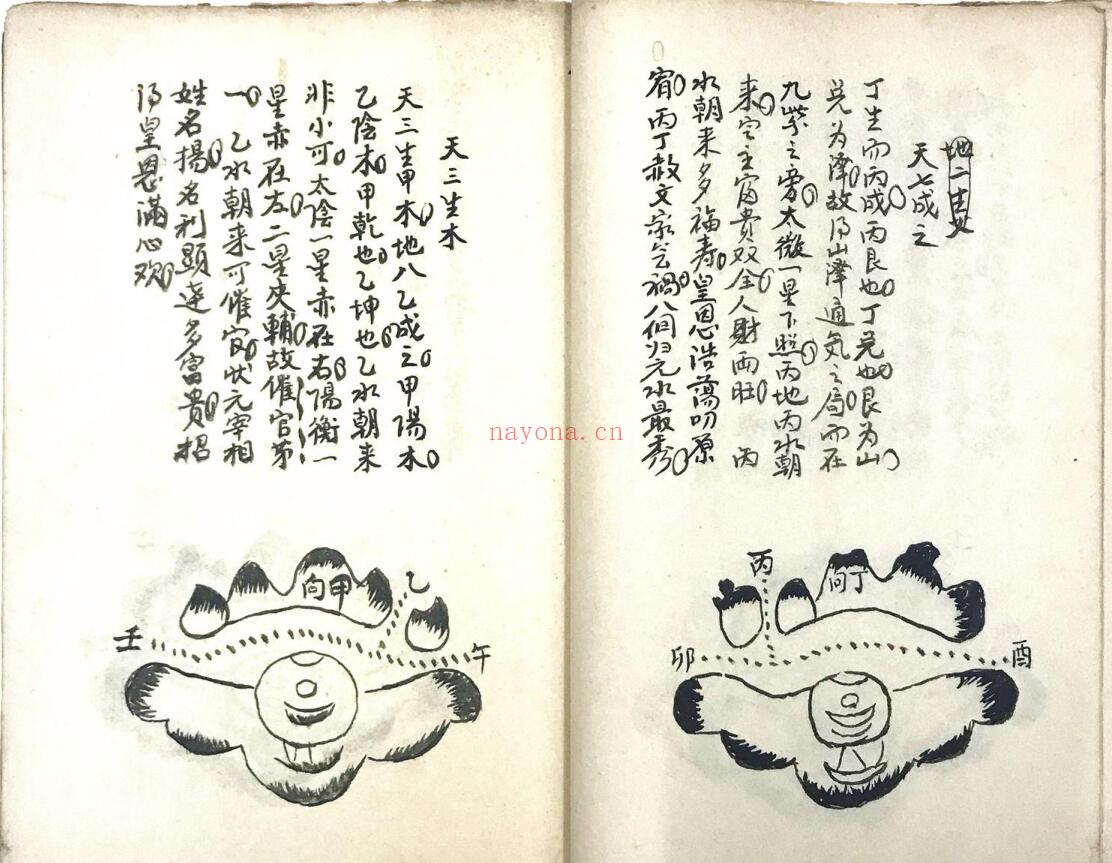 地二生火
天七成之
丁生而丙成丙艮也丁兑也艮为山
兑为泽故得山泽通气之局而在
九紫之旁太微一星下照丙地丙水朝
来定主富貴双全人財两旺 丙
水朝来多福寿皇恩浩蕩叨原
宥丙丁赦文家无禍八個归元水最秀
向丁
丙
卯
酉
天三生木
天三生甲木地八乙成之甲陽木
乙陰木甲乾也乙坤也乙水朝来
非小可太陰一星赤在右陽衡一
星赤在左二星夾輔故催官苐
一乙水朝来可催官状元宰相
姓名揚名利顕達多富貴招
得皇恩滿心欢
向甲
乙
壬
午
nayona.cn